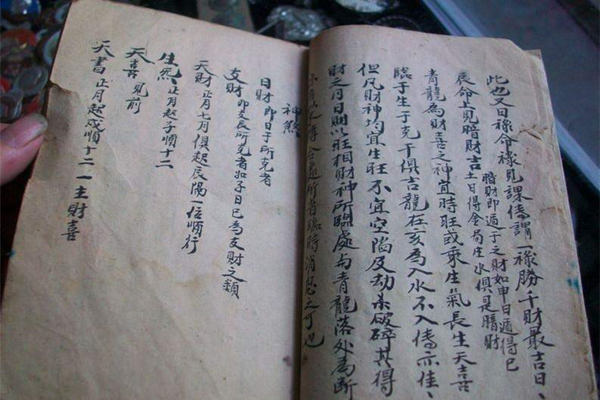 此也又曰祿命祿見課傳謂一祿勝千財最吉日、
辰命上見暗財吉
暗財即遁干之財如甲日遁得己
土日得金局生水俱是暗財
青龍為財喜之神宜時旺或乘生氣長生天喜
臨于生于克干俱吉龍在亥為入水不入傳亦佳、
但凡財神均宜生旺不宜空陷及劫杀破碎其得
財之月日期以旺相財神所臨處与青龍落处為断
神煞
日財即日干所克者
支財即支辰所克者如子日巳為支財之類
天財正月七月俱起辰陽一位順行
生炁正月起子順十二
天喜見前
天書正月起戌順十二一主財喜